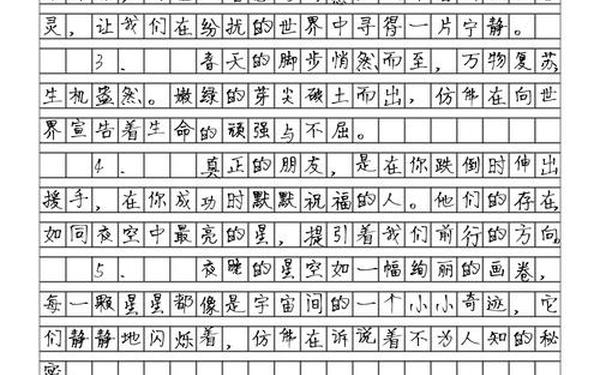 灵，让我们在纷扰的世界中寻得一片宁静。
3. 春天的脚步悄然而至，万物复苏
生机盎然。嫩绿的芽尖破土而出，仿佛在向世
界宣告着生命的顽强与不屈。
4. 真正的朋友，是在你跌倒时伸出
援手，在你成功时默默祝福的人。他们的存在，
如同夜空中最亮的星，指引着我们前行的方向。
5. 夜晚的星空如一幅绚丽的画卷，
每一颗星星都像是宇宙间的一个小小奇迹，它
们静静地闪烁着，仿佛在诉说着不为人知的秘